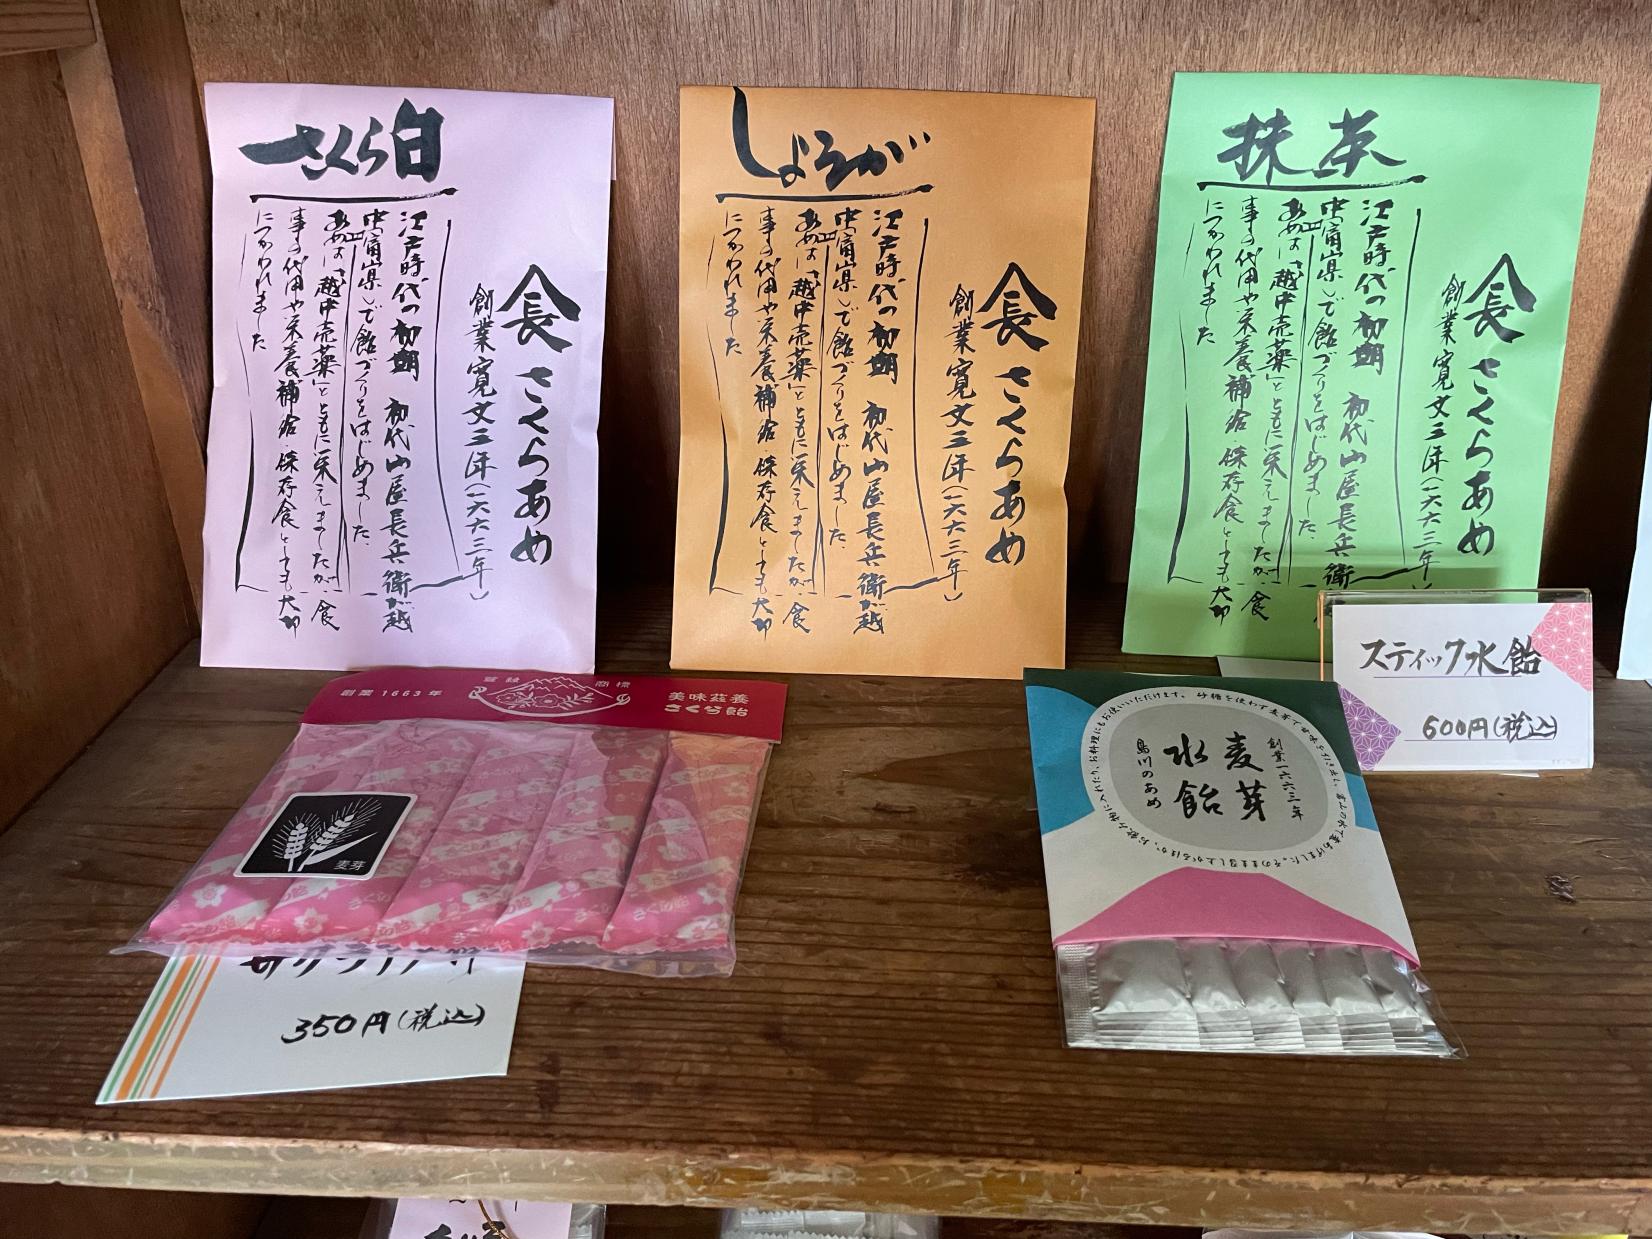 さくら白
さくらあめ
創業寛文三年(一六六三年)
江戸時代の初期 初代山屋長兵衛が越
中(富山県)で飴づくりをはじめました。
あめは「越中売薬」とともに栄えましたが、食
事の代用や栄養補給・保存食としても大切
につかわれました
しょうが
さくらあめ
創業寛文三年(一六六三年)
江戸時代の初期 初代山屋長兵衛が越
中(富山県)で飴づくりをはじめました。
あめは「越中売薬」とともに栄えましたが、食
事の代用や栄養補給・保存食としても大切
につかわれました
抹茶
さくらあめ
創業寛文三年(一六六三年)
江戸時代の初期 初代山屋長兵衛
中(富山県)で飴づくりをはじめました。
あめは「越中売薬」とともに栄えましたが、食
事の代用や栄養補給・保存食としても大切
につかわれました
創業1663年
登録 商標
美味滋養
さくら飴
麦芽
350円(税込)
創業一六六三年
麦芽
水飴
島川のあめ
砂糖を使わず麦芽で甘味を引き出し、富山の水で炊きあげました。そのまま召し上がるほか、お飲み物に入れたり、お料理にもお使いいただけます。
スティック水飴
600円(税込)